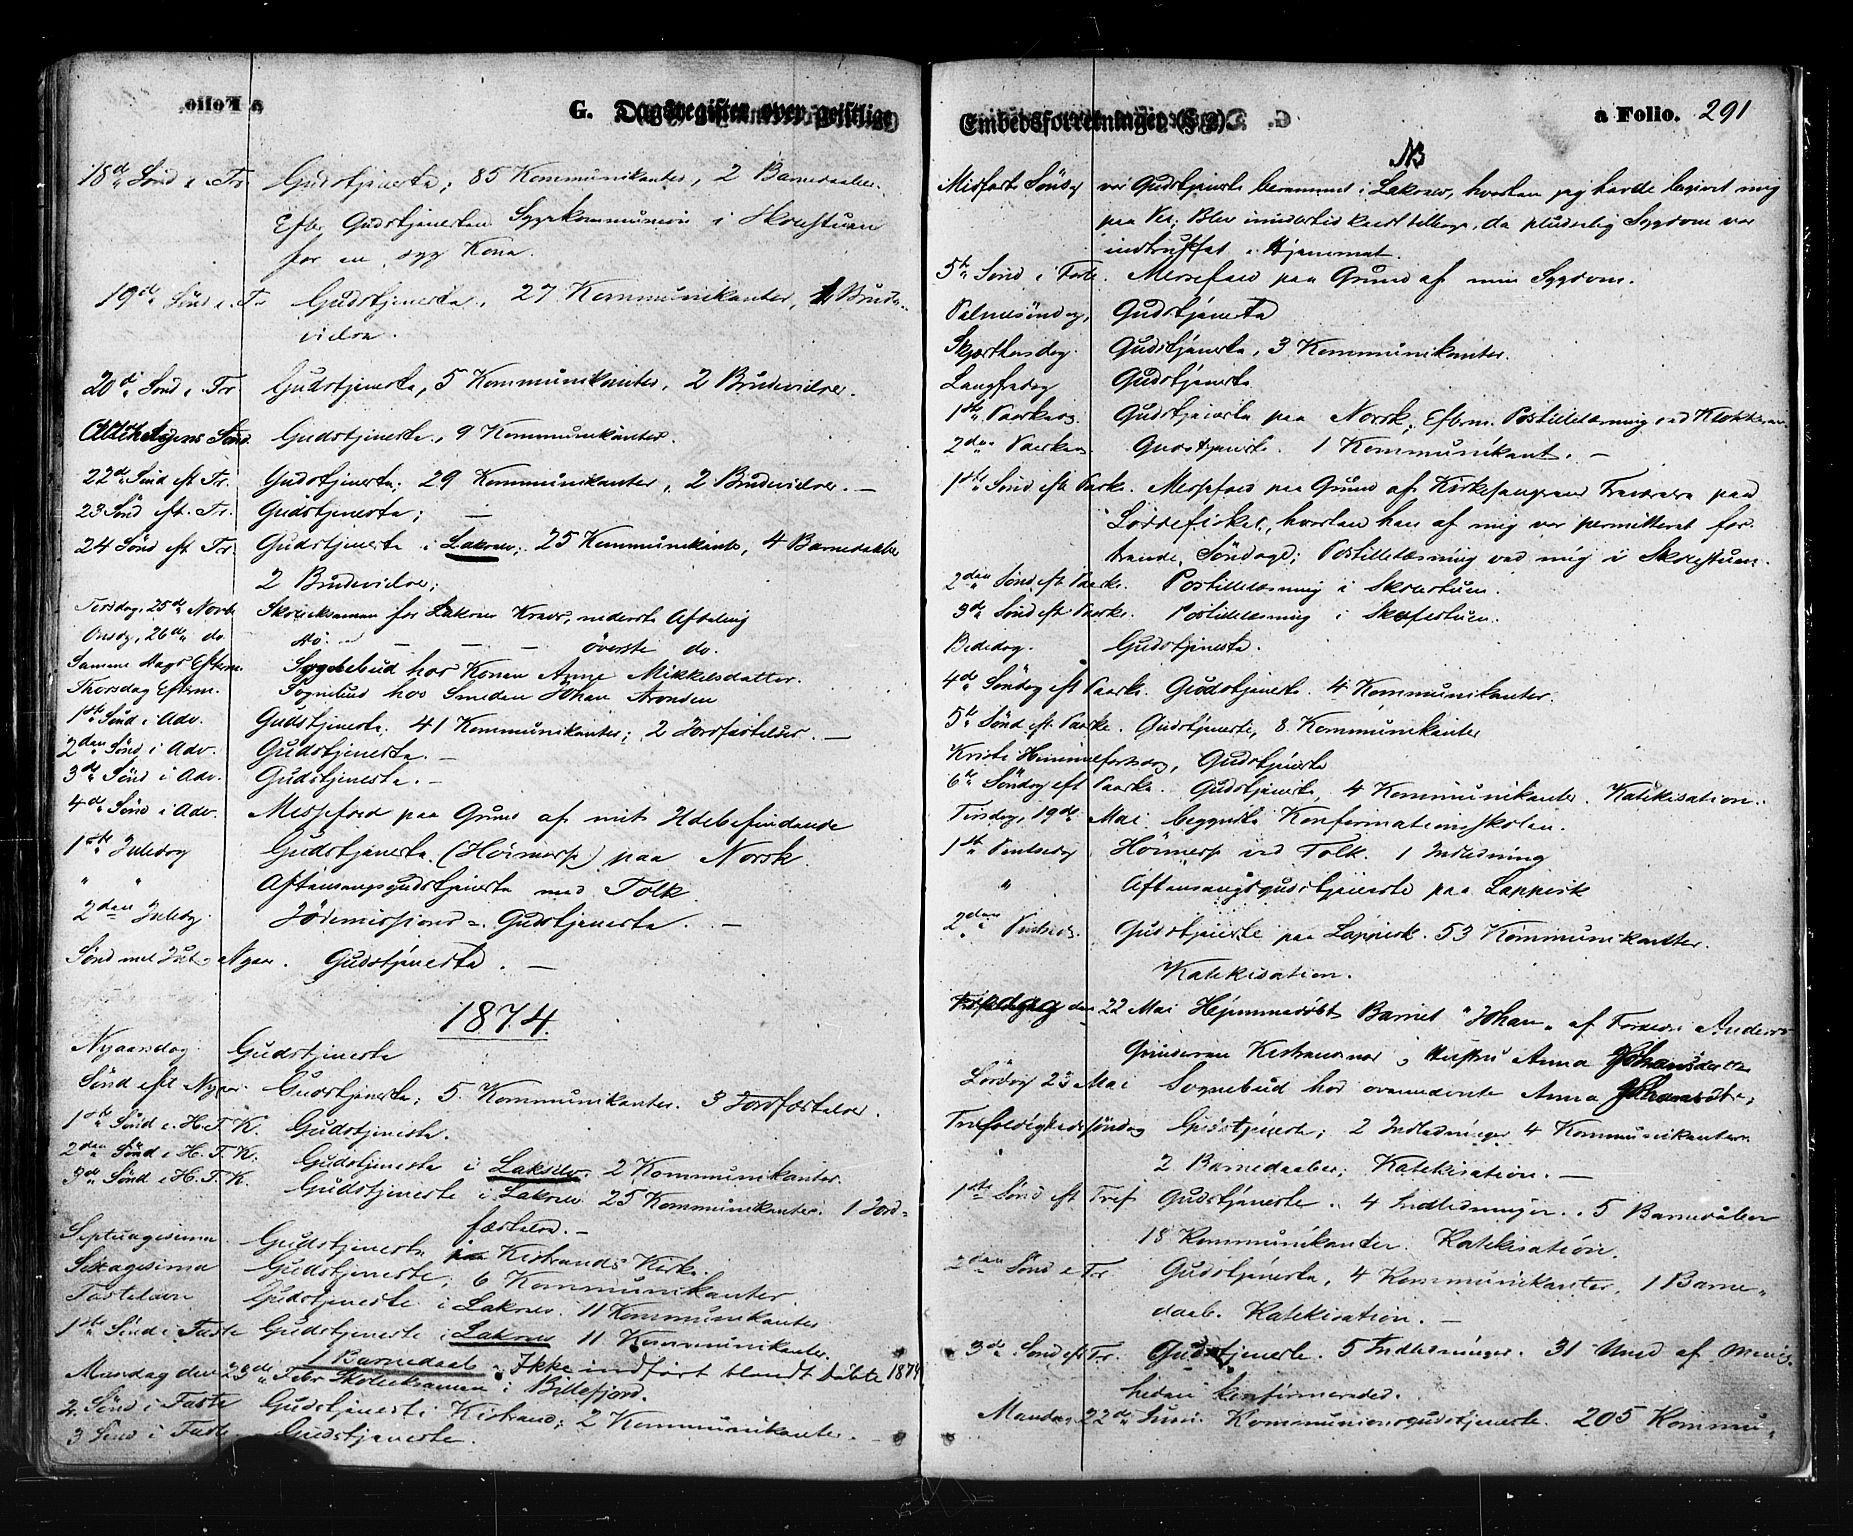 G. Dagsregister over geistlige
18de Sønd e. Tr. Gudstjeneste; 85 Kommunikanter, 2 Barnedaaber.
Efter Gudstjenesten Sygekommunion i Skolestuen
for en syg Kone.
19de Sønd e. Tr Gudstjeneste, 27 Kommunikanter, 1 Brude-
vielse.
20de Sønd e. Tr Gudstjeneste, 5 Kommunikanter, 2 Brudevielser.
Allehelgens Sønd. Gudstjeneste, 9 Kommunikanter.
22de Sønd eft Tr. Gudstjeneste; 29 Kommunikanter, 2 Brudevielser. —
23 Sønd eft. Tr. Gudstjeneste; —
24 Sønd eft Tr. Gudstjeneste i Lakselv; 25 Kommunikanter, 4 Barnedaaber
2 Brudevielser;
Tirsdag, 25de Novbr Skoleeksamen for Lakselv Kreds, nederste Afdeling
Onsdg, 26de do do. — — — — øverste do.
Samme Dags Efterm. Sognebud hos Konen Anne Mikkelsdatter.
Thorsdag Efterm. Sognebud hos Smeden Johan Aronsen
1ste Sønd i Adv. Gudstjeneste. 41 Kommunikanter; 2 Jordfæstelser. —
2den Sønd i Adv. Gudstjeneste. —
3de Sønd i Adv. Gudstjeneste. —
4de Sønd i Adv. Messefald paa Grund af mit Ildebefindende
1ste Juledag Gudstjeneste (Høimesse) paa Norsk.
" " Aftensangsgudstjeneste med Tolk.
2den Juledg. Jødemissions-Gudstjeneste. —
Sønd mel Jul & Nyaar. Gudstjeneste. —
1874.
Nyaarsdag. Gudstjeneste
Sønd eft Nyaar. Gudstjeneste; 5 Kommunikanter. 3 Jordfæstelser.
1ste Sønd e. H. T. K. Gudstjeneste.
2den Sønd e H. T. K. Gudstjeneste i Lakselv. 2 Kommunikanter.
3de Sønd e H. T. K. Gudstjeneste i Lakselv 25 Kommunikanter. 1 Jord-
fæstelse. —
Septuagesima Gudstjeneste i Kistrands Kirke.
Sexagesima Gudstjeneste, 6 Kommunikanter.
Fastelavn Gudstjeneste i Lakselv. 11 Kommunikanter
1ste Sønd i Faste Gudstjeneste i Lakselv 11 Kommunikanter.
1 Barnedaab. Ikke indført blandt døbte 1874
Mandag den 23de Febr Skoleeksamen i Billefjord.
2. Sønd i Faste Gudstjeneste i Kistrand; 2 Kommunikanter. —
3 Sønd i Faste Gudstjeneste.
Embedsforretninger (§ 2). a Folio. 291
NB
Midfaste Søndag var Gudstjeneste berammet i Lakselv, hvortil jeg havde begivet mig
paa Vei; Blev imidlertid kaldt tilbage, da pludselig Sygdom var
indtruffet i Hjemmet.
5te Sønd i Faste. Messefald paa Grund af min Sygdom.
Palmesøndag, Gudstjeneste
Skjærthorsdag. Gudstjeneste, 3 Kommunikanter.
Langfredag Gudstjeneste
1ste Paaskedag Gudstjeneste paa Norsk; Efterm. Postillelæsning ved Klokkeren
2den Paaskedag Gudstjeneste. 1 Kommunikant. —
1ste Sønd eft Paaske. Messefald paa Grund af Kirkesangerens Fraværelse paa
Loddefisket, hvortil han af mig var permitteret for
trende Søndage; Postillelæsning ved mig i Skolestuen.
2den Sønd eft Paaske. Postillelæsning i Skolestuen.
3de Sønd eft Paaske. Postillelæsning i Skolestuen.
Bededag. Gudstjeneste.
4de Søndag eft Paaske. Gudstjeneste. 4 Kommunikanter.
5te Sønd eft. Paaske. Gudstjeneste, 8 Kommunikanter
Kristi Himmelfartsdag, Gudstjeneste
6te Søndag eft Paaske. Gudstjeneste, 4 Kommunikanter. Katekisation.
Tirsdag, 19de Mai begyndte Konfirmationsskolen.
1ste Pintsedag Høimesse ved Tolk. 1 Indledning
" Aftensangsgudstjeneste paa Lappisk
2den Pintsed. Gudstjeneste paa Lappisk. 53 Kommunikanter.
Katekisation.
Fredag den 22 Mai Hjemmedøbt Barnet "Johan" af Anders
Kistrandsnæs og Hustru Anna Johansdatter
Lørdag 23 Mai Sognebud hos ovennævnte Anna Johansdtr,
Trefoldighedssøndag Gudstjeneste; 2 Indledninger 4 Kommunikanter.
2 Barnedaaber; Katekisation. —
1ste Sønd eft Tref Gudstjeneste. 4 Indledninger. 5 Barnedåber
18 Kommunikanter. Katekisation.
2den Sønd e Tr. Gudstjeneste, 4 Kommunikanter, 1 Barne-
daab. Katekisation. —
3de Sønd eft Tr. Gudstjeneste. 5 Indledninger. 31 Ungd af Menig-
heden konfirmerede.
Mandag 22de Juni. Kommunionsgudstjeneste. 205 Kommu-